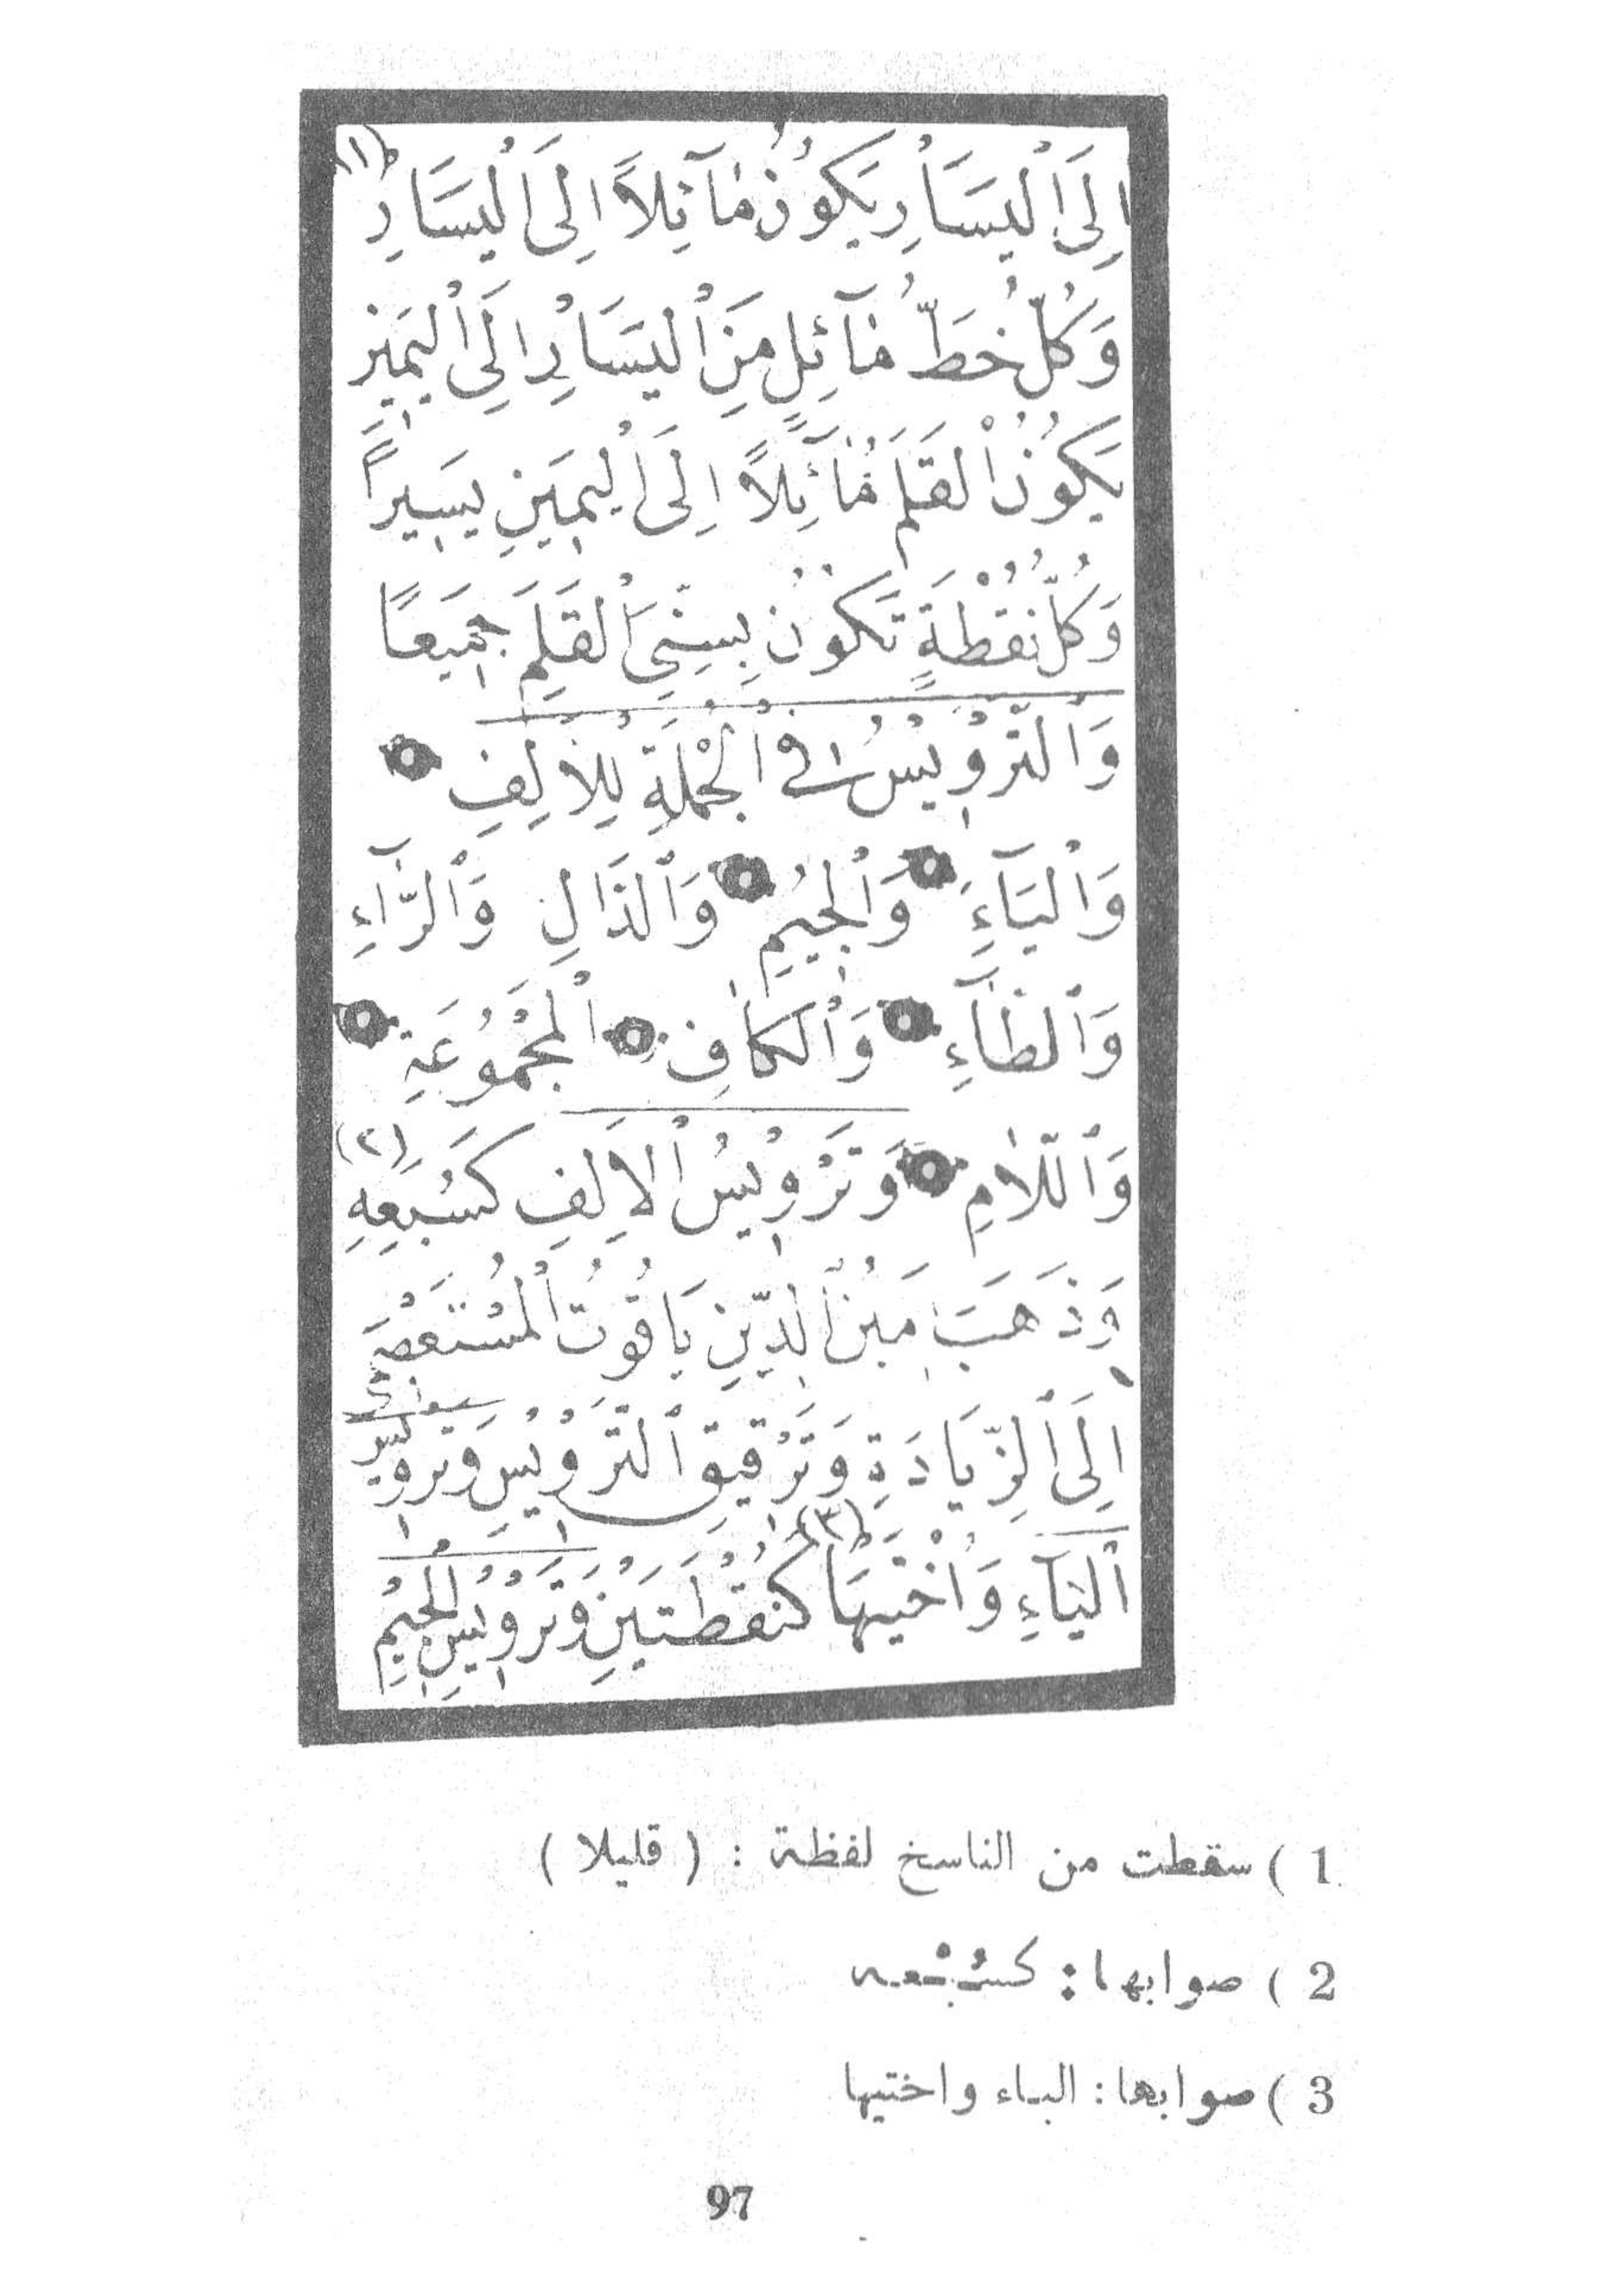 اِلَى الْيَسَارِ يَكُونُ مَآئِلاً اِلَى الْيَسَارِ (١)
وَكُلُّ خَطٍّ مَآئِلٍ مِنَ الْيَسَارِ اِلَى الْيَمِينِ
يَكُونُ الْقَلَمُ مَآئِلاً اِلَى الْيَمِينِ يَسِيراً
وَكُلُّ نُقْطَةٍ تَكُونُ بِسِنَّيِ الْقَلَمِ جَمِيعًا
وَالتَّرْوِيسُ فِي الْجُمْلَةِ لِلْاَلِفِ
وَالْبَآءِ وَالْجِيمِ وَالدَّالِ وَالرَّآءِ
وَالطَّآءِ وَالْكَافِ الْمَجْمُوعَةِ
وَاللَّامِ وَتَرْوِيسُ الْاَلِفِ كَسُبَعِهِ (٢)
وَذَهَبَ الدِّينِ يَاقُوتُ الْمُسْتَعْصِمِي
اِلَى الزِّيَادَةِ وَتَرْقِيقِ التَّرْوِيسِ وَتَرْوِيسُ
الْيَآءِ وَاُخْتَيْهَا (٣) كَنُقْطَتَيْنِ وَتَرْوِيسُ الْجِيمِ
1 ) سقطت من الناسخ لفظة : ( قليلا )
2 ) صوابها : كسُبْعه
3 ) صوابها : الباء واختيها
97